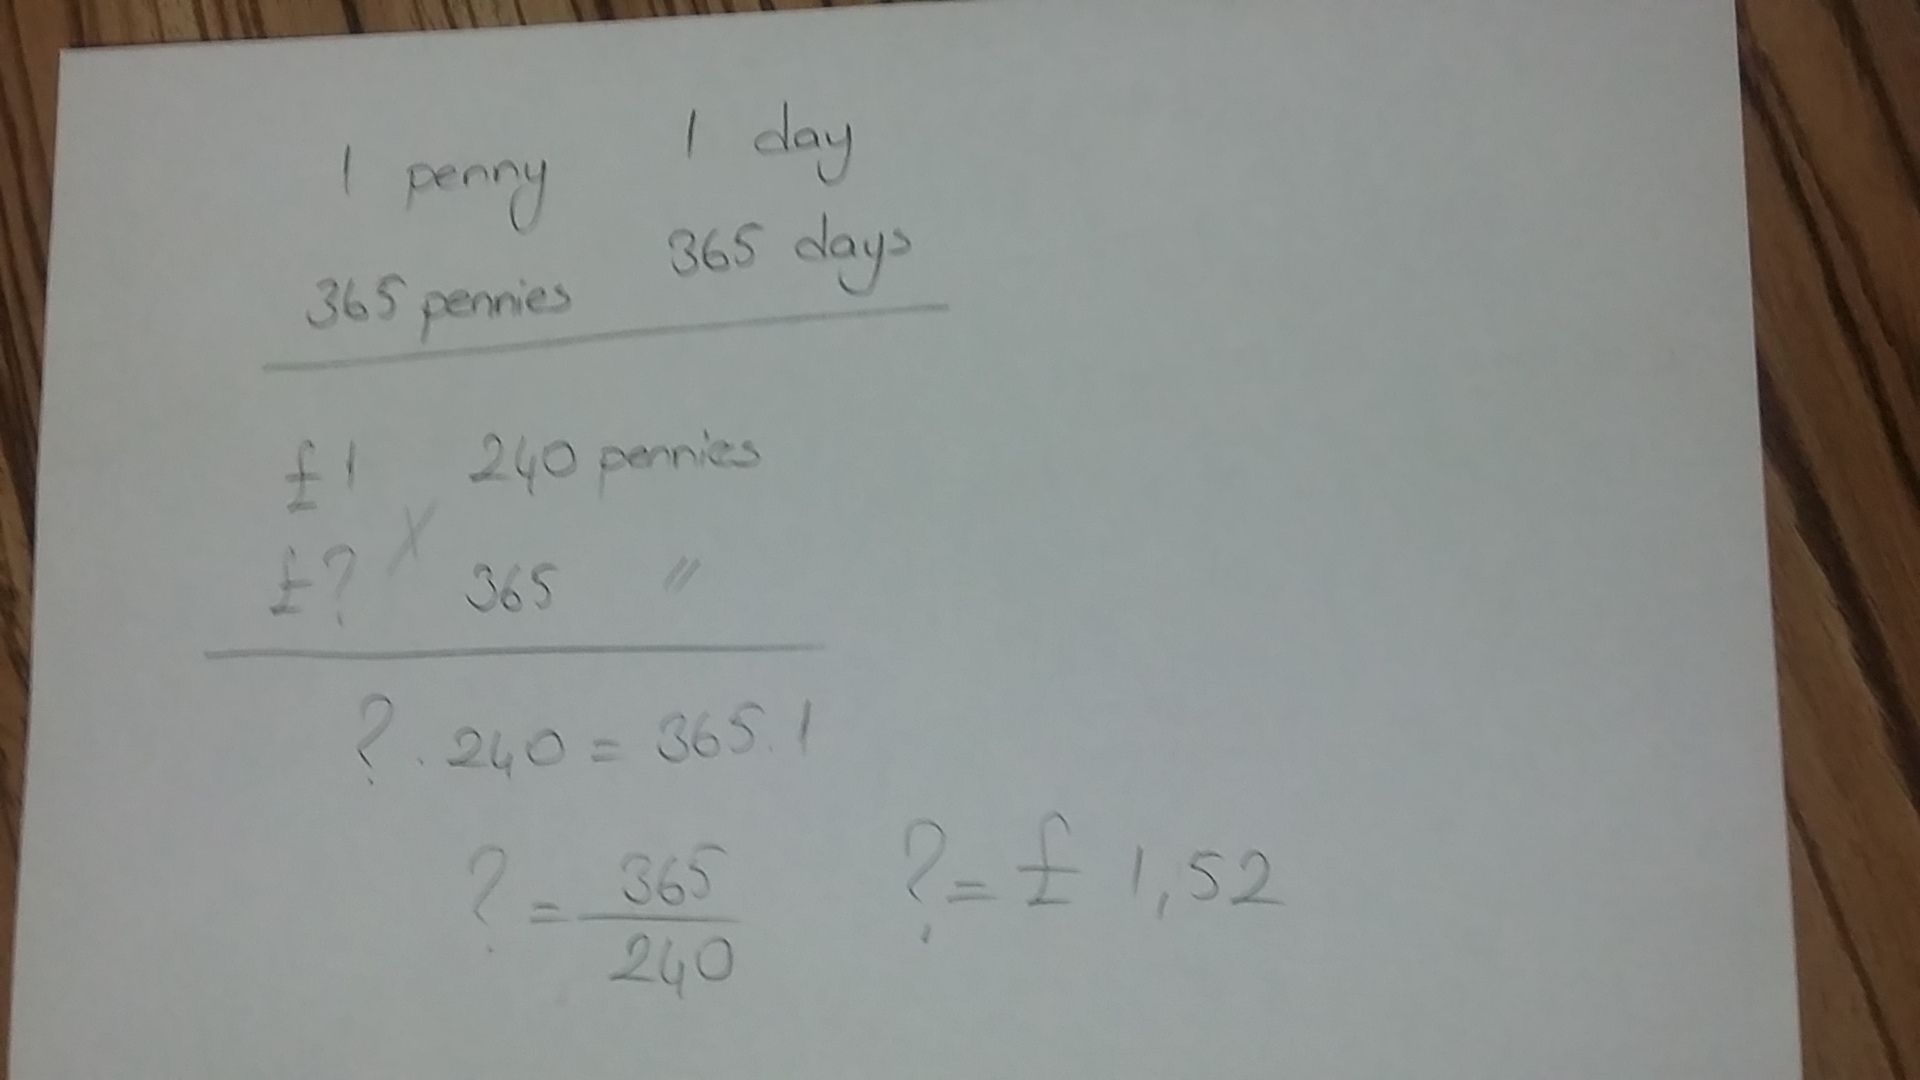 1 penny 1 day
365 pennies 365 days
£1 240 pennies
£? X 365 "
? . 240 = 365.1
? = 365/240 ? = £ 1,52